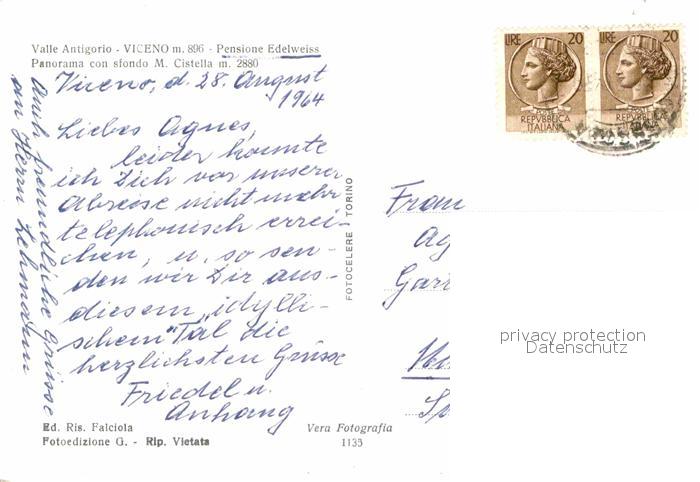 Valle Antigorio - VICENO m. 896 - Pensione Edelweiss
Panorama con sfondo M. Cistella m. 2880
Viceno, d. 28. August
1964
Liebes Agnes,
leider konnte
ich Dich vor unserer
Abreise nicht mehr
telephonisch errei-
chen, u. so sen-
den wir Dir aus
diesem „idylli-
schem" Tal die
herzlichsten Grüsse
Friedel u.
Anhang
Auch freundliche Grüsse
an Herrn Lehmann
Ed. Ris. Falciola
Fotoedizione G. - Rip. Vietata
Vera Fotografia
1135
FOTOCELERE TORINO
LIRE 20
POSTE
REPVBBLICA
ITALIANA
LIRE 20
POSTE
REPVBBLICA
ITALIANA
Frau
Ag
Gar
privacy protection
Datenschutz